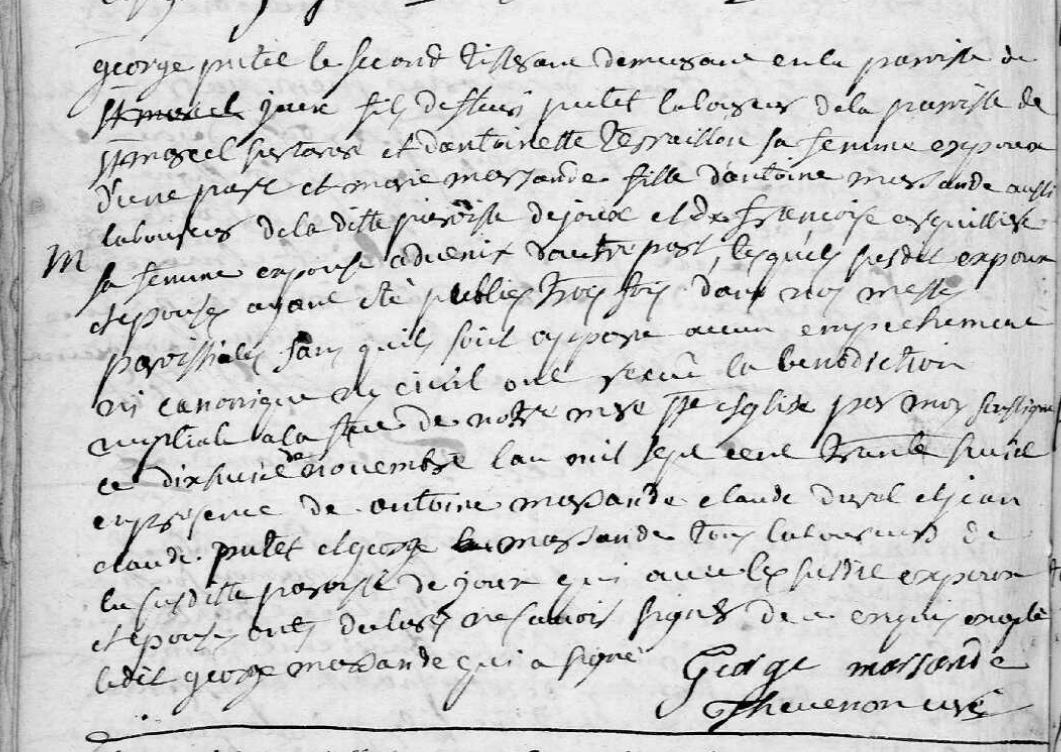 george putet le second tisseran demeurant en la paroisse de
St marcel joux fils de fleuri putet laboureur de la paroisse de
St marcel susdares et dantoinette Terraillon sa femme expoux
d'une part et marie marsande fille dantoine marsande aussi
laboureur de la ditte paroisse de joux et de francoise
M
sa femme expouse advenir d'autre part, lesquels susdit expoux
et epouses ayant eté publies trois fois dans nos messes
paroissiales sans quils soit oppose aucun empechement
ni canonique ny civil ont recеu la benediction
nuptiale a la face de notre mere Ste esglise par moy soussigne
ce dixhuit de novembre lan mil sept cent trente huit
en presence de antoine marsande claude duril et jean
claude putet et george marsande tous laboureurs de
la susditte paroisse de joux qui avec les susdit expoux
et epouses ont declares ne scavoir signer de ce enquis excepte
ledit george marsande qui a signé
George marsande
Thevenon curé